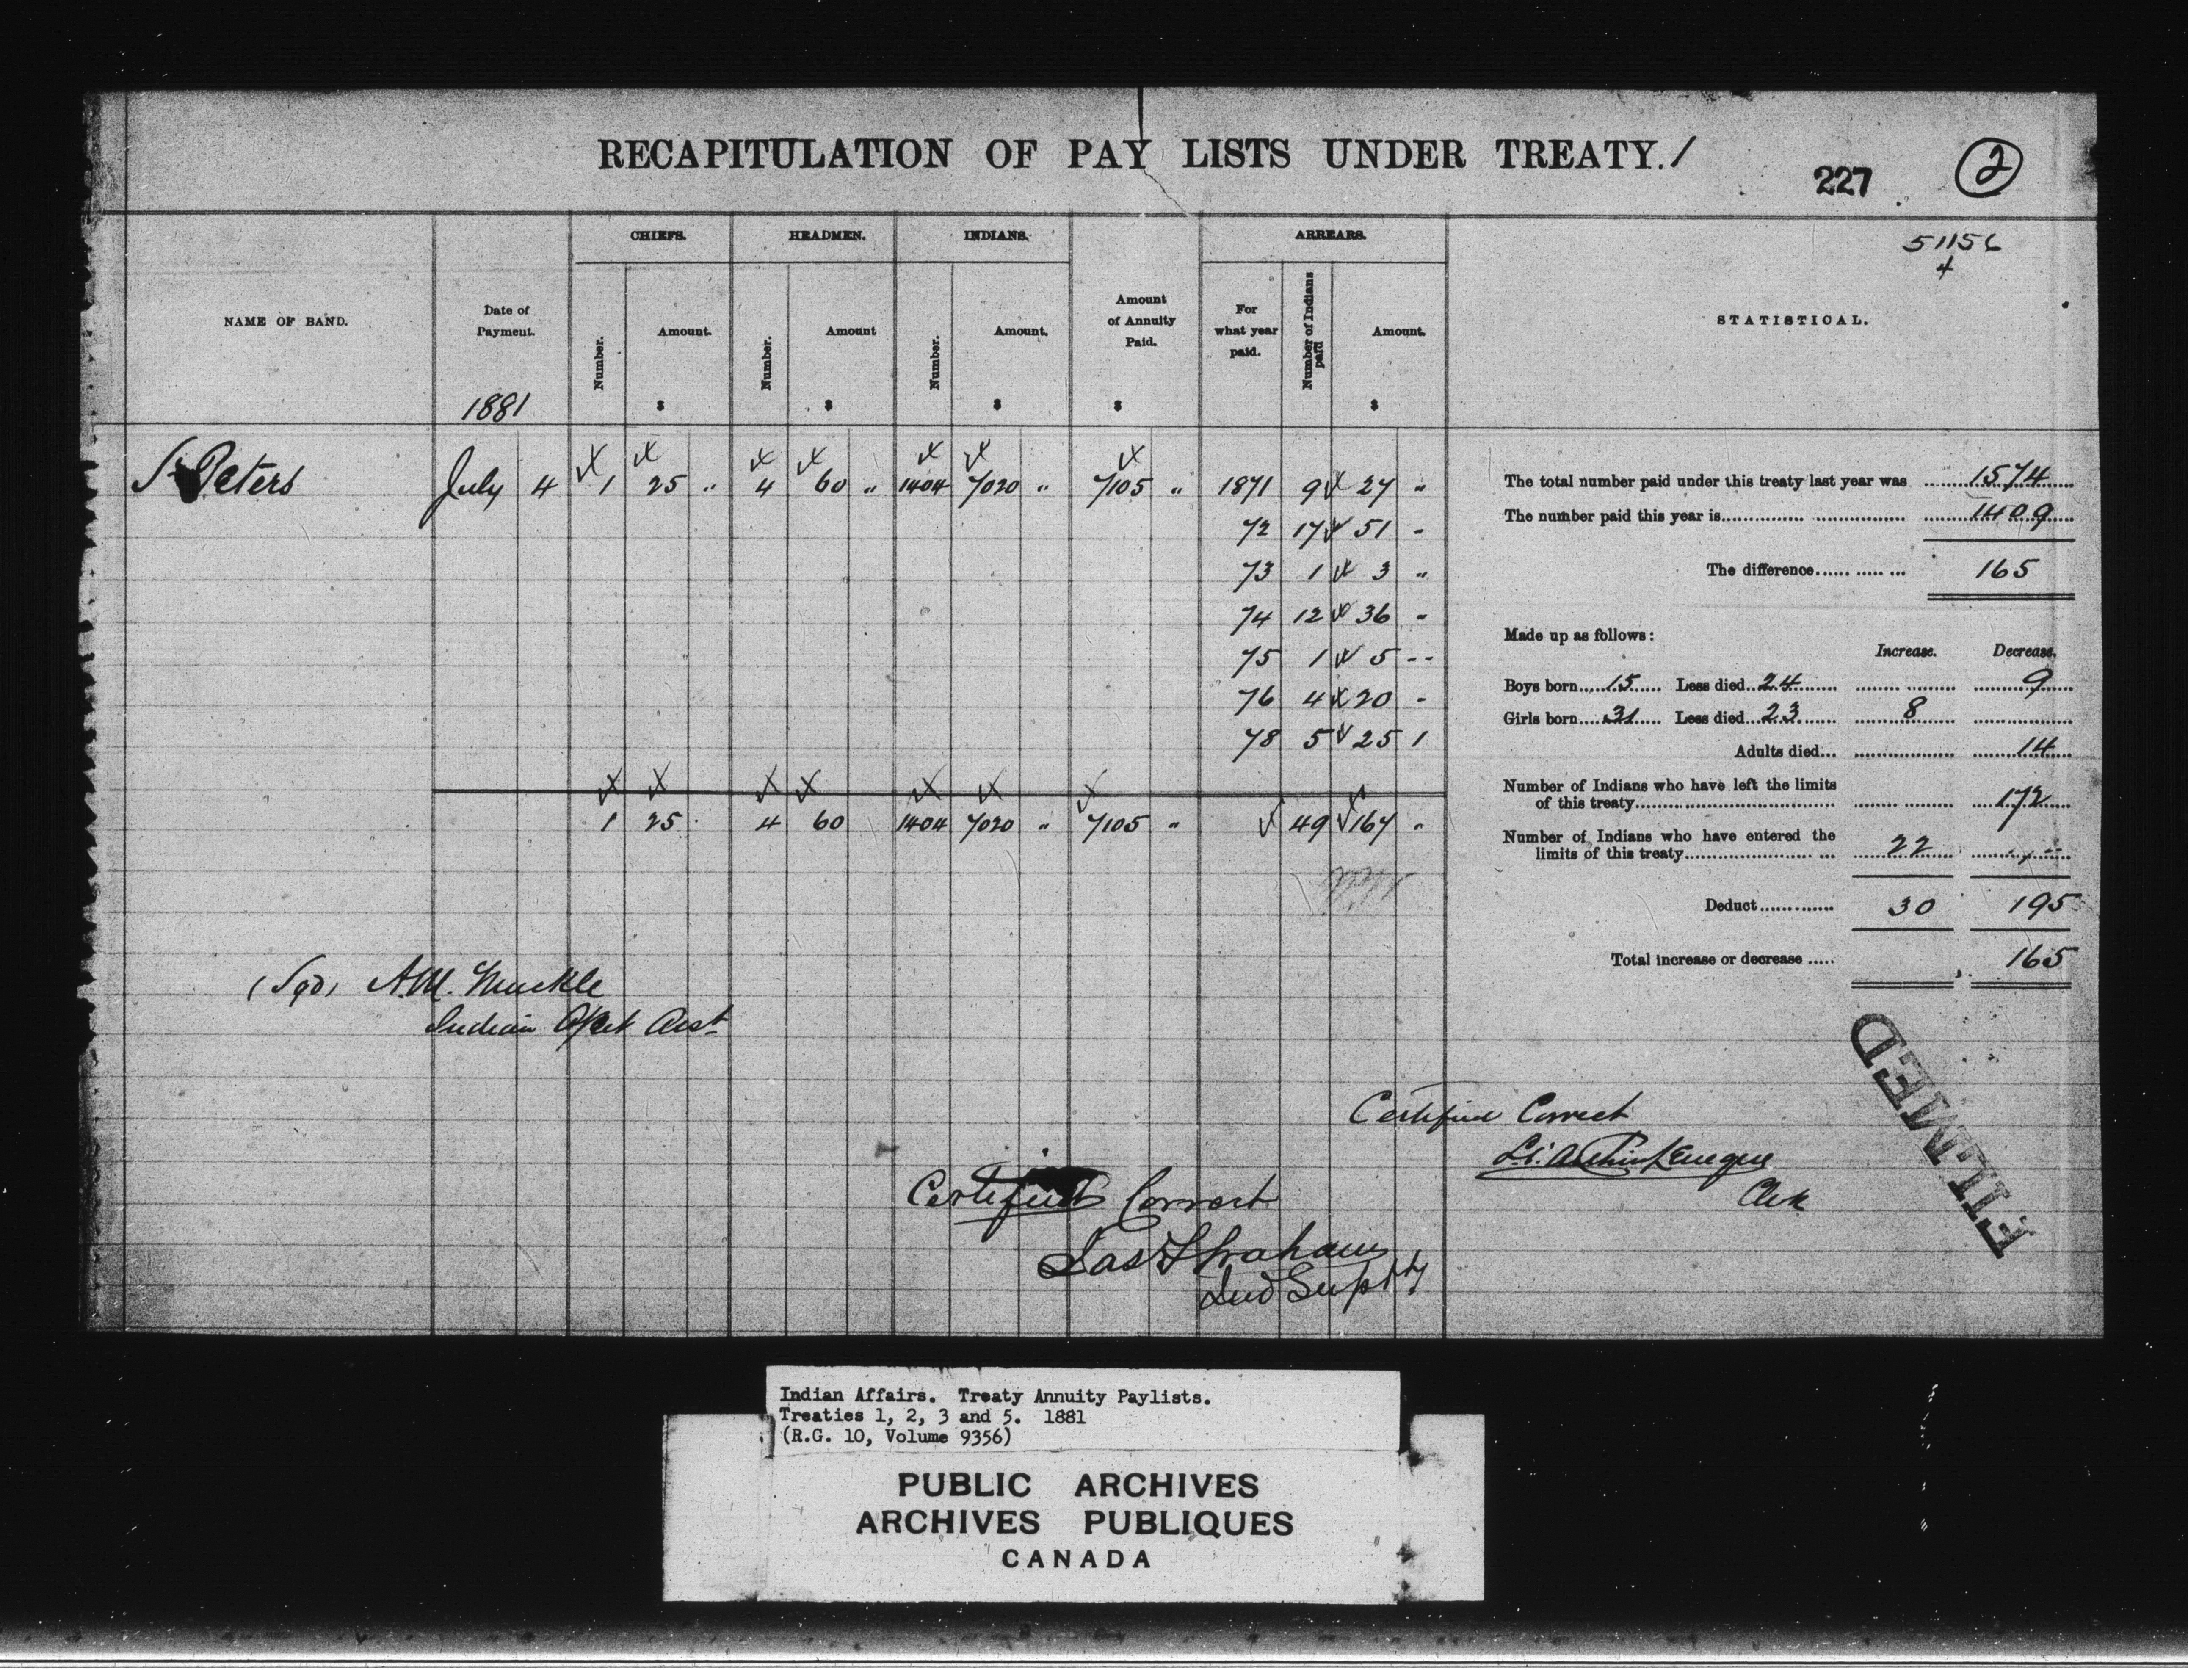 RECAPITULATION OF PAY LISTS UNDER TREATY. 1
227
2
51156
4
NAME OF BAND.
Date of Payment.
1881
CHIEFS.
Number.
Amount.
$
HEADMEN.
Number.
Amount
$
INDIANS.
Number.
Amount.
$
Amount of Annuity Paid.
$
ARREARS.
For what year paid.
Number of Indians paid
Amount.
$
STATISTICAL.
St Peters July 4 1 25 " 4 60 " 1404 7020 " 7105 " 1871 9 27 "
72 17 51 "
73 1 3 "
74 12 36 "
75 1 5 --
76 4 20 "
78 5 25 1
1 25 . 4 60 1404 7020 " 7105 " 49 167 "
The total number paid under this treaty last year was 1574
The number paid this year is 1409
The difference 165
Made up as follows:
Increase. Decrease.
Boys born 15 Less died 24 9
Girls born 31 Less died 23 8
Adults died 14
Number of Indians who have left the limits
of this treaty 172
Number of Indians who have entered the
limits of this treaty 22
Deduct 30 195
Total increase or decrease 165
(Sgd) A.M. Muckle
Indian Agent
Certified Correct
Clerk
Certified Correct
Jas F Graham
Ind Supt
FILMED
Indian Affairs. Treaty Annuity Paylists.
Treaties 1, 2, 3 and 5. 1881
(R.G. 10, Volume 9356)
PUBLIC ARCHIVES
ARCHIVES PUBLIQUES
CANADA